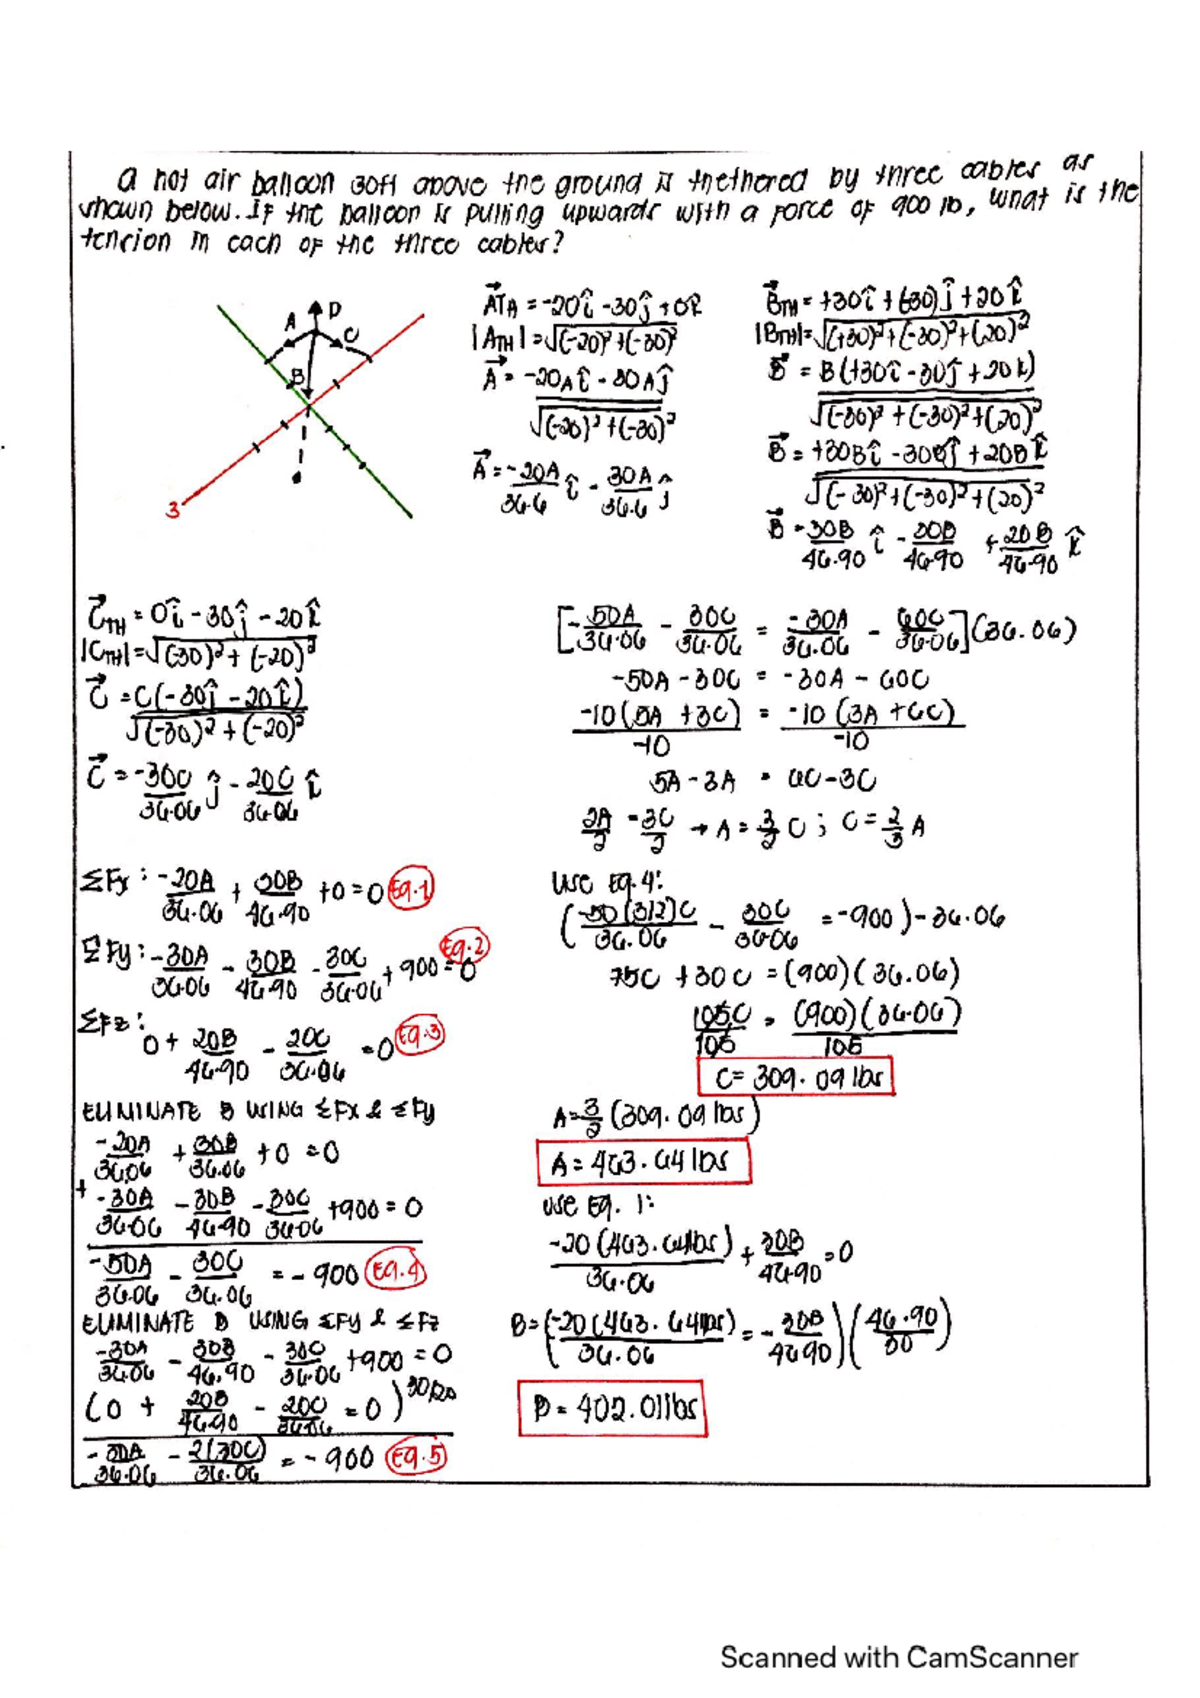 A hot air balloon 30ft above the ground is thethered by three cables as
shown below. If the balloon is pulling upwards with a force of 900 lb, what is the
tension in each of the three cables?
A D C
B
3
A⃗TA = -20î -30ĵ + 0k̂
|ATH| = √(-20)² + (-30)²
A⃗ = -20Aî - 30Aĵ
√(-20)² + (-30)²
A⃗ = -20A/36.6 î - 30A/36.6 ĵ
B⃗TH = +30î + (-30)ĵ + 20k̂
|BTH| = √(+30)² + (-30)² + (20)²
B⃗ = B(+30î - 30ĵ + 20k̂)
√(-30)² + (-30)² + (20)²
B⃗ = +30Bî - 30Bĵ + 20Bk̂
√(-30)² + (-30)² + (20)²
B⃗ = 30B/46.90 î - 30B/46.90 + 20B/46.90 k̂
C⃗TH = 0î - 30ĵ - 20k̂
|CTH| = √(-30)² + (-20)²
C⃗ = C(-30ĵ - 20k̂)
√(-30)² + (-20)²
C⃗ = -30C/36.06 ĵ - 20C/36.06 k̂
ΣFx : -20A/36.06 + 30B/46.90 + 0 = 0 Eq.1
ΣFy : -30A/36.06 - 30B/46.90 - 30C/36.06 + 900 = 0 Eq.2
ΣFz : 0 + 20B/46.90 - 20C/36.06 = 0 Eq.3
ELIMINATE B USING ΣFx & ΣFy
-20A/36.06 + 30B/36.06 + 0 = 0
+ -30A/36.06 - 30B/46.90 - 30C/36.06 + 900 = 0
-50A/36.06 - 30C/36.06 = -900 Eq.4
ELIMINATE B USING ΣFy & ΣFz
-30A/36.06 - 30B/46.90 - 30C/36.06 + 900 = 0
(0 + 20B/46.90 - 20C/36.06 = 0) 30/20
-30A/36.06 - 2(30C)/36.06 = -900 Eq.5
[-50A/36.06 - 30C/36.06 = -30A/36.06 - 60C/36.06](36.06)
-50A - 30C = -30A - 60C
-10(5A + 3C)/-10 = -10(3A + 6C)/-10
5A - 3A = 6C - 3C
2A/2 = 3C/2 → A = 3/2 C ; C = 2/3 A
Use Eq.4:
(-50(3/2)C/36.06 - 30C/36.06 = -900) -36.06
75C + 30C = (900)(36.06)
105C/105 = (900)(36.06)/105
C = 309.09 lbs
A = 3/2 (309.09 lbs)
A = 463.64 lbs
Use Eq. 1:
-20(463.64 lbs)/36.06 + 30B/46.90 = 0
B = (-20(463.64 lbs)/36.06 = -30B/46.90)(46.90/30)
B = 402.01 lbs
Scanned with CamScanner